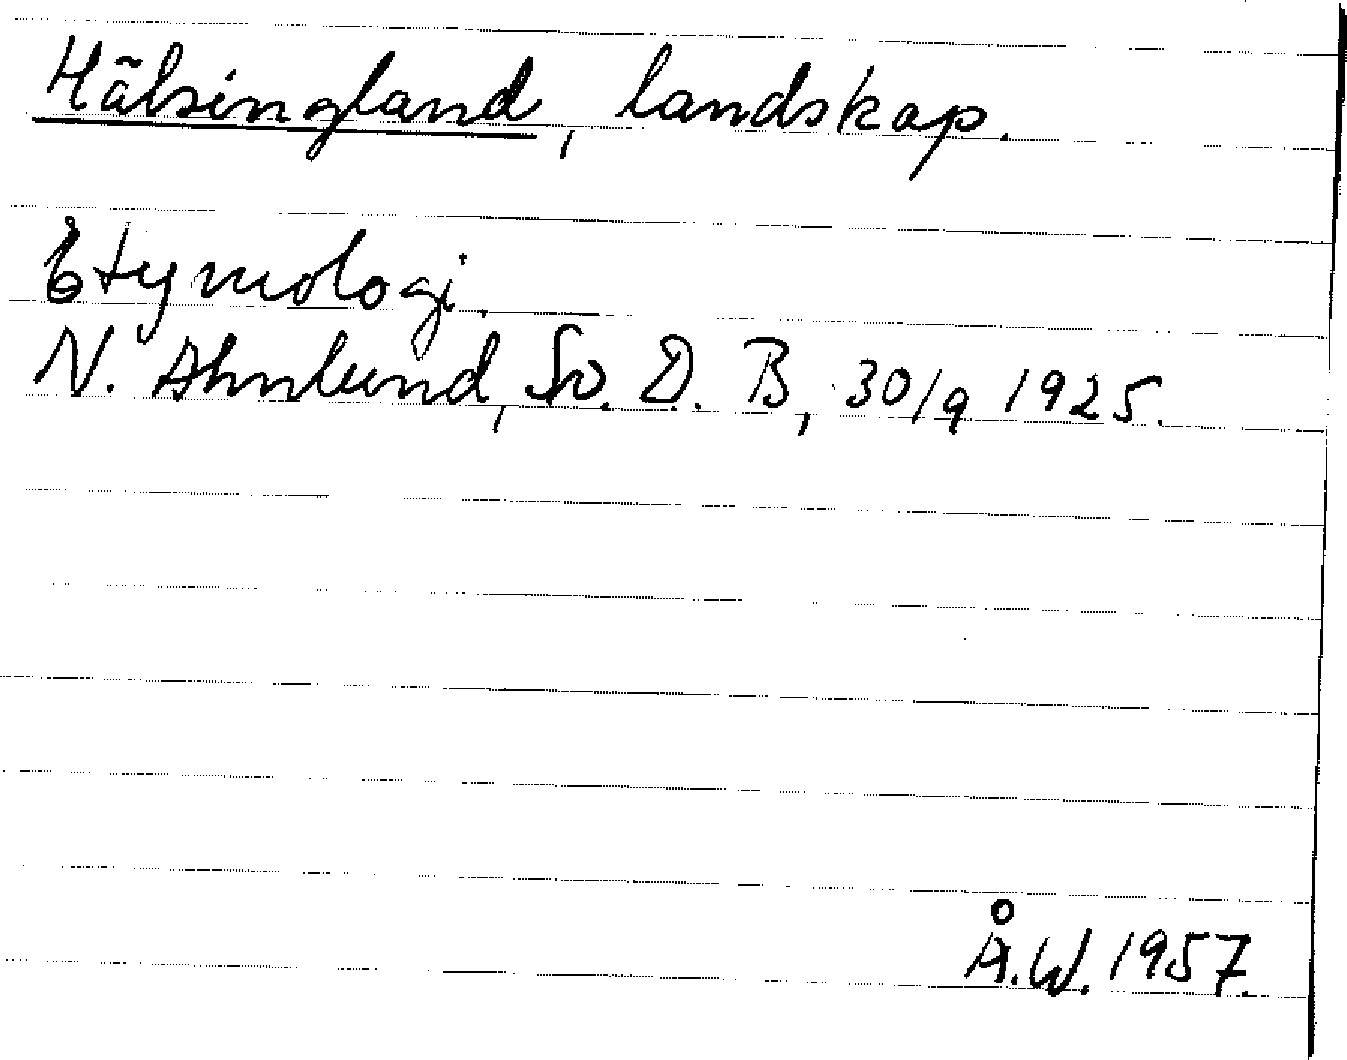 Hälsingland, landskap.
Etymologi.
N. Ahnlund, Sv. D. B, 30/9 1925.
Å.W. 1957.